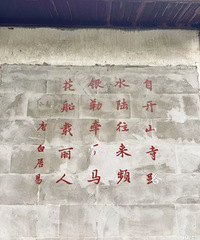 自开山寺
水陆往来频
银勒牵马
花船载丽人
白居易